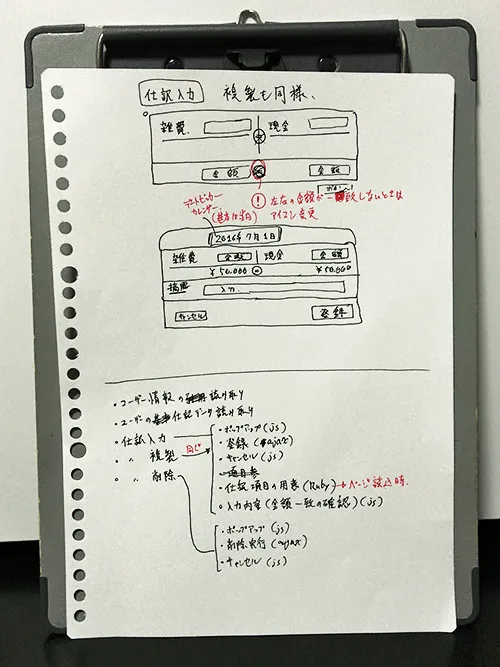 仕訳入力 複製も同様、
雑費 現金
金額 金額
! 左右の金額が一致しないときは
アイコン変更
デートピッカー
カレンダー
(基本は当月)
2016年7月1日
雑費 金額 現金 金額
¥50,000 ¥50,000
摘要 入力
キャンセル 登録
・ユーザー情報の読み取り
・ユーザーの仕訳データ読み取り
・仕訳入力
・〃 複製 同じ
・〃 削除
・ポップアップ(js)
・登録(ajax)
・キャンセル(js)
・仕訳項目の用意(Ruby)→ページ読込時
・入力内容(金額一致の確認)(js)
・ポップアップ(js)
・削除実行(ajax)
・キャンセル(js)